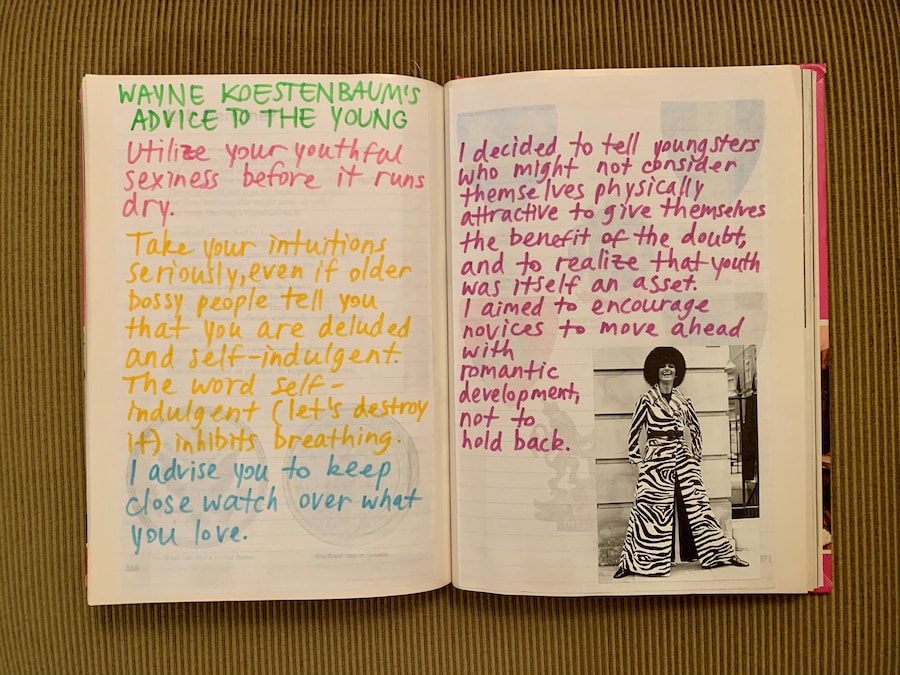 WAYNE KOESTENBAUM'S
ADVICE TO THE YOUNG
Utilize your youthful
sexiness before it runs
dry.
Take your intuitions
seriously, even if older
bossy people tell you
that you are deluded
and self-indulgent.
The word self-
indulgent (let's destroy
it) inhibits breathing.
I advise you to keep
close watch over what
you love.
I decided to tell youngsters
who might not consider
themselves physically
attractive to give themselves
the benefit of the doubt,
and to realize that youth
was itself an asset.
I aimed to encourage
novices to move ahead
with
romantic
development,
not to
hold back.